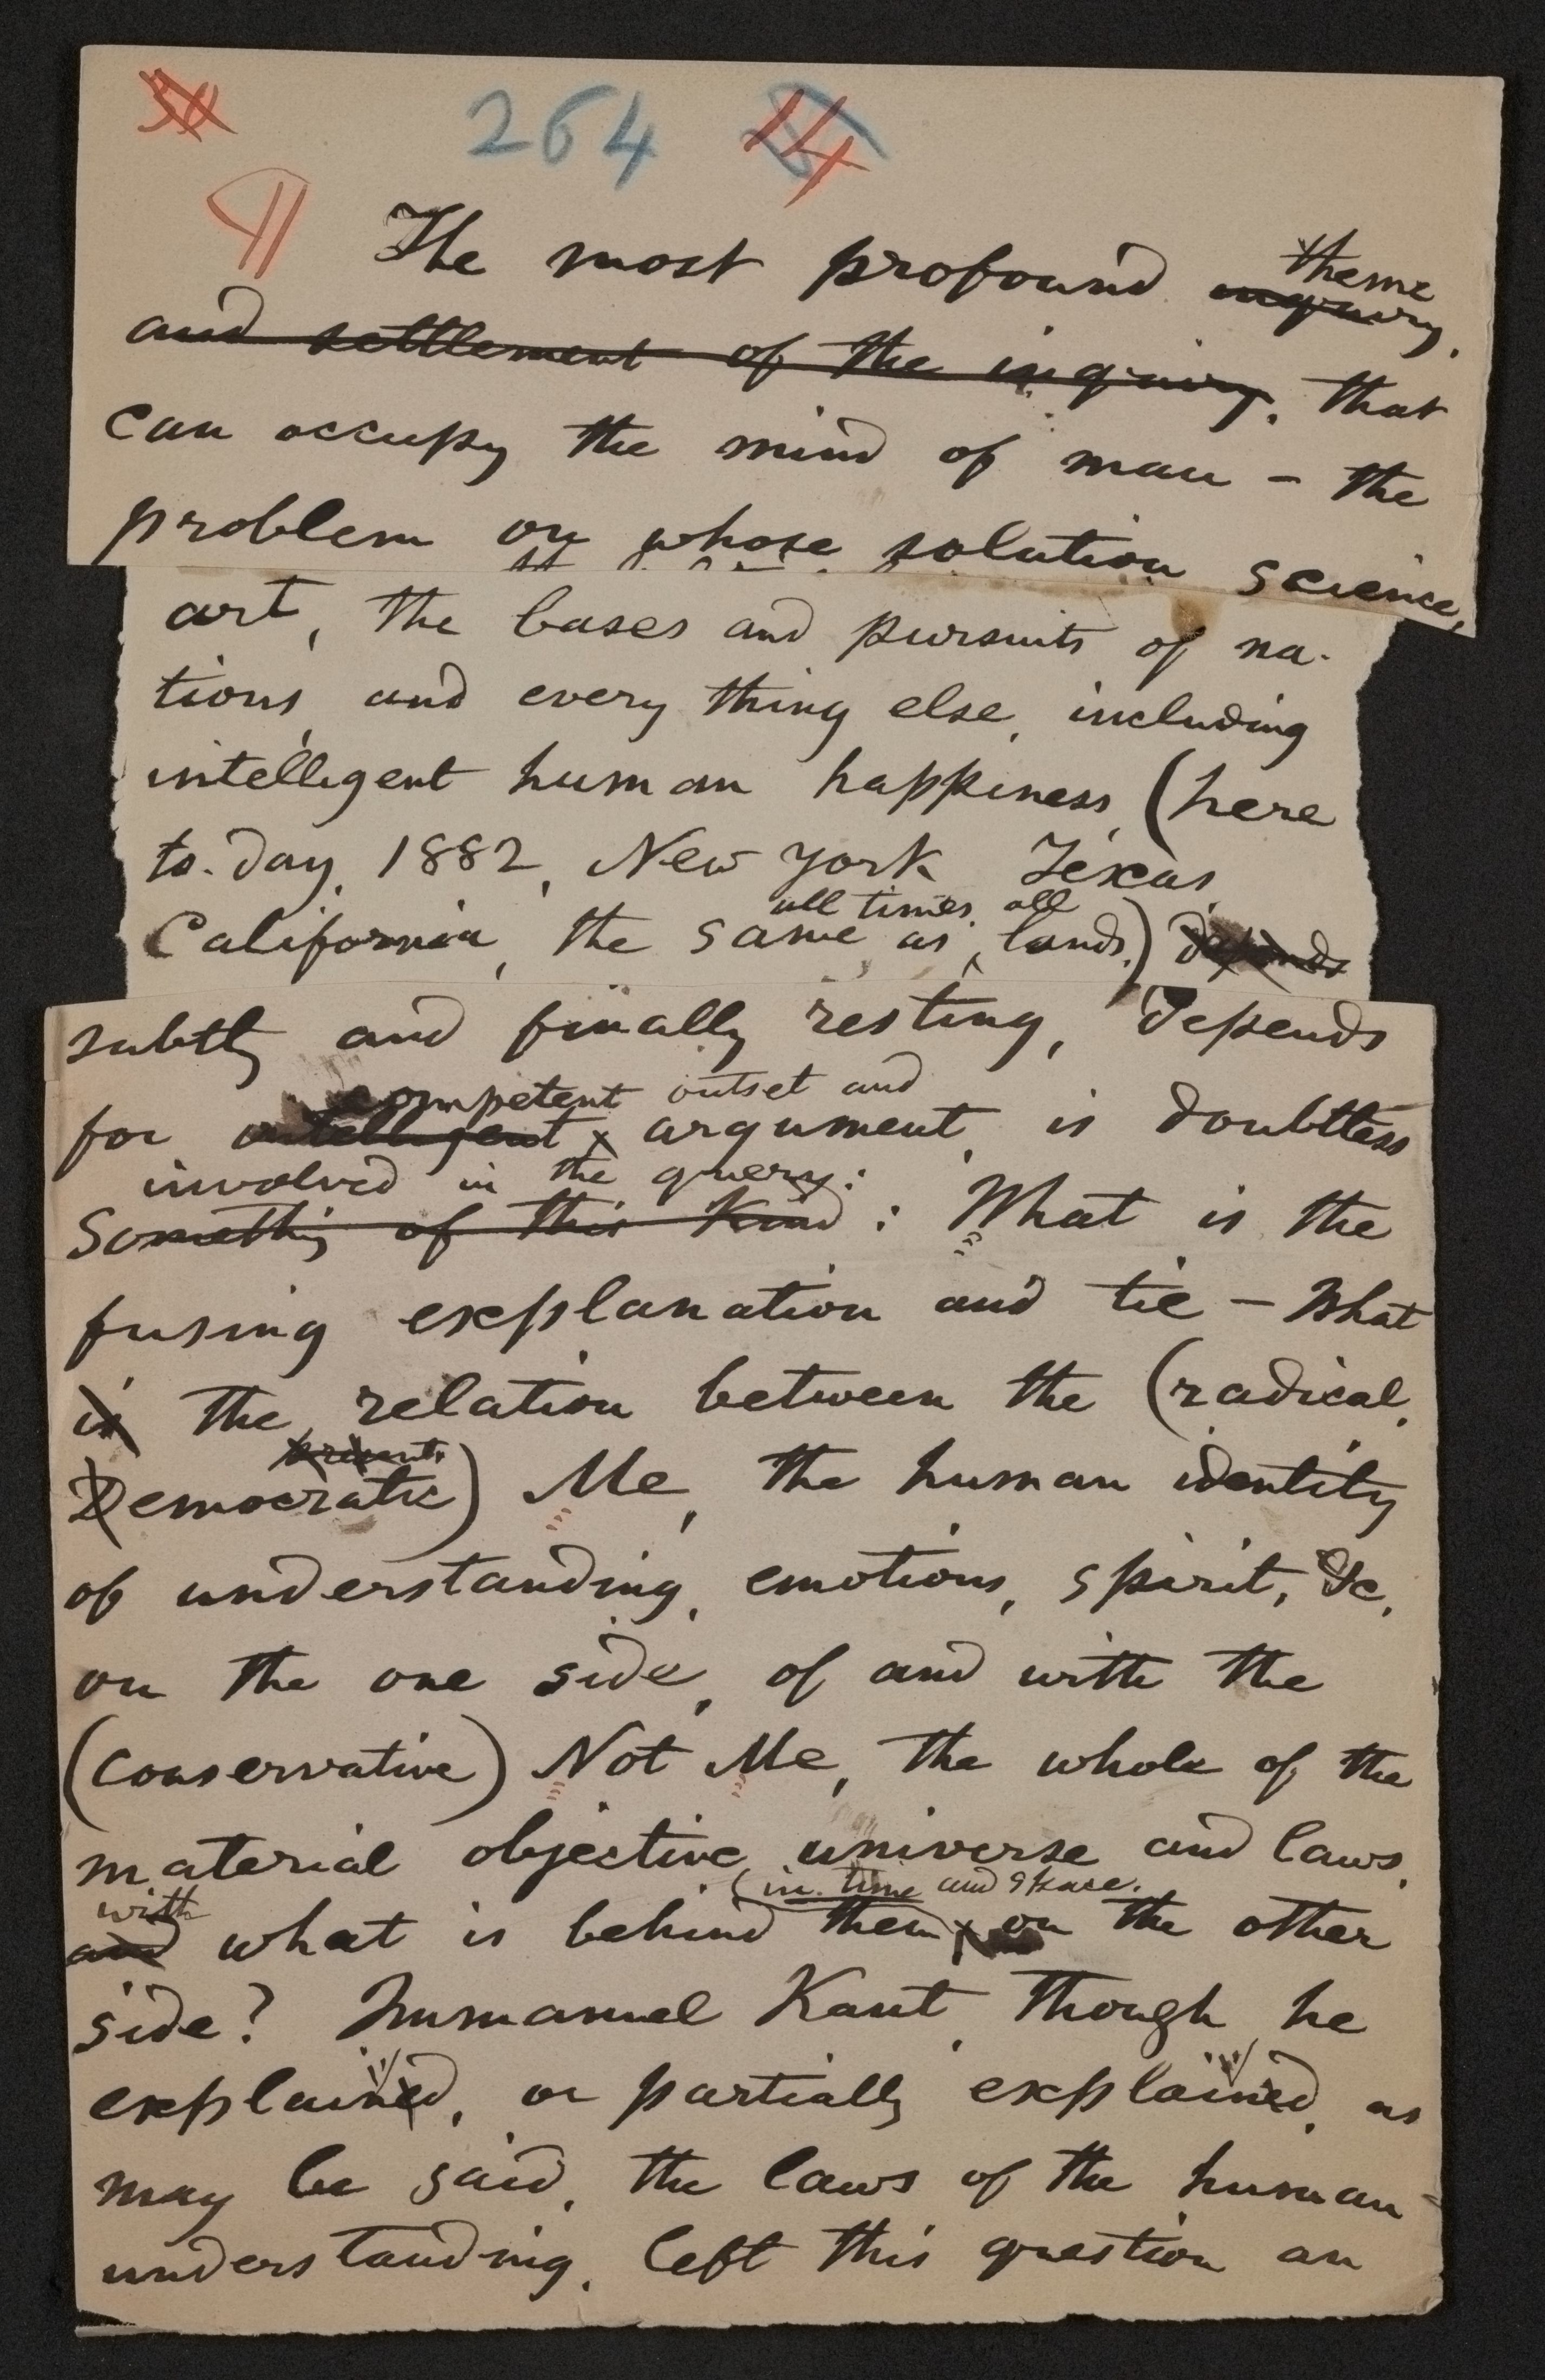 30 264 14
¶ The most profound theme inquiry,
and settlement of the inquiry, that
can occupy the mind of man – the
problem on whose solution science,
art, the bases and pursuits of na-
tions, and every thing else, including
intelligent human happiness, (here
to-day, 1882, New York, Texas,
California, the same as all times, all lands,) depends
subtly and finally resting, depends
for intelligent competent outset and argument, is doubtless
involved in the query:
Somethig of this kind: What is the
fusing explanation and tie – What
is the relation between the (radical,
Democratic) Me, the human identity
of understanding, emotions, spirit, &c,
on the one side, of and with the
(conservative) Not Me, the whole of the
material objective universe and laws,
with and what is behind them in time and space, on the other
side? Immanuel Kant, though he
explained, or partially explained, as
may be said, the laws of the human
understanding, left this question an